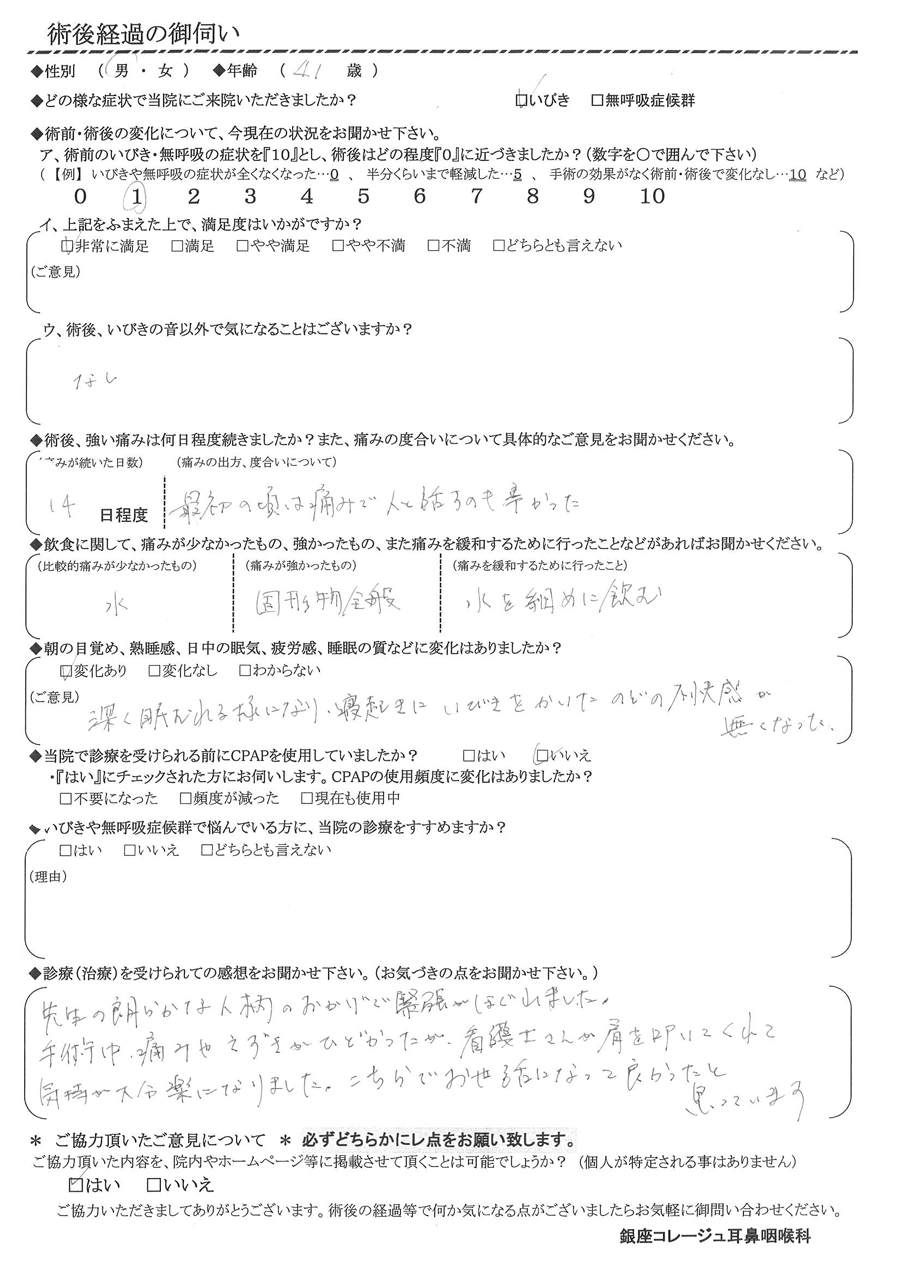 術後経過の御伺い
◆性別 （ 男 ・ 女 ） ◆年齢 （ 41 歳 ）
◆どの様な症状で当院にご来院いただきましたか？ ☑いびき □無呼吸症候群
◆術前・術後の変化について、今現在の状況をお聞かせ下さい。
ア、術前のいびき・無呼吸の症状を『10』とし、術後はどの程度『0』に近づきましたか？（数字を〇で囲んで下さい）
（【例】いびきや無呼吸の症状が全くなくなった…0 、 半分くらいまで軽減した…5 、 手術の効果がなく術前・術後で変化なし…10 など）
0 1 2 3 4 5 6 7 8 9 10
イ、上記をふまえた上で、満足度はいかがですか？
☑非常に満足 □満足 □やや満足 □やや不満 □不満 □どちらとも言えない
（ご意見）
ウ、術後、いびきの音以外で気になることはございますか？
なし
◆術後、強い痛みは何日程度続きましたか？また、痛みの度合いについて具体的なご意見をお聞かせください。
（痛みが続いた日数） （痛みの出方、度合いについて）
14 日程度 最初の頃は痛みで人と話るのも辛かった
◆飲食に関して、痛みが少なかったもの、強かったもの、また痛みを緩和するために行ったことなどがあればお聞かせください。
（比較的痛みが少なかったもの） （痛みが強かったもの） （痛みを緩和するために行ったこと）
水 固形物全般 水を細めに飲む
◆朝の目覚め、熟睡感、日中の眠気、疲労感、睡眠の質などに変化はありましたか？
☑変化あり □変化なし □わからない
（ご意見） 深く眠むれる様になり、寝起きにいびきをかいたのどの不快感が
無くなった。
◆当院で診療を受けられる前にCPAPを使用していましたか？ □はい ☑いいえ
・『はい』にチェックされた方にお伺いします。CPAPの使用頻度に変化はありましたか？
□不要になった □頻度が減った □現在も使用中
◆いびきや無呼吸症候群で悩んでいる方に、当院の診療をすすめますか？
□はい □いいえ □どちらとも言えない
（理由）
◆診療（治療）を受けられての感想をお聞かせ下さい。（お気づきの点をお聞かせ下さい。）
先生の朗らかな人柄のおかげで緊張がほぐれました。
手術中、痛みやえずきがひどかったが、看護士さんが肩を叩いてくれて
気持が大分楽になりました。こちらでお世話になって良かったと
思っています
＊ ご協力頂いたご意見について ＊ 必ずどちらかにレ点をお願い致します。
ご協力頂いた内容を、院内やホームページ等に掲載させて頂くことは可能でしょうか？ （個人が特定される事はありません）
☑はい □いいえ
ご協力いただきましてありがとうございます。術後の経過等で何か気になる点がございましたらお気軽に御問い合わせください。
銀座コレージュ耳鼻咽喉科